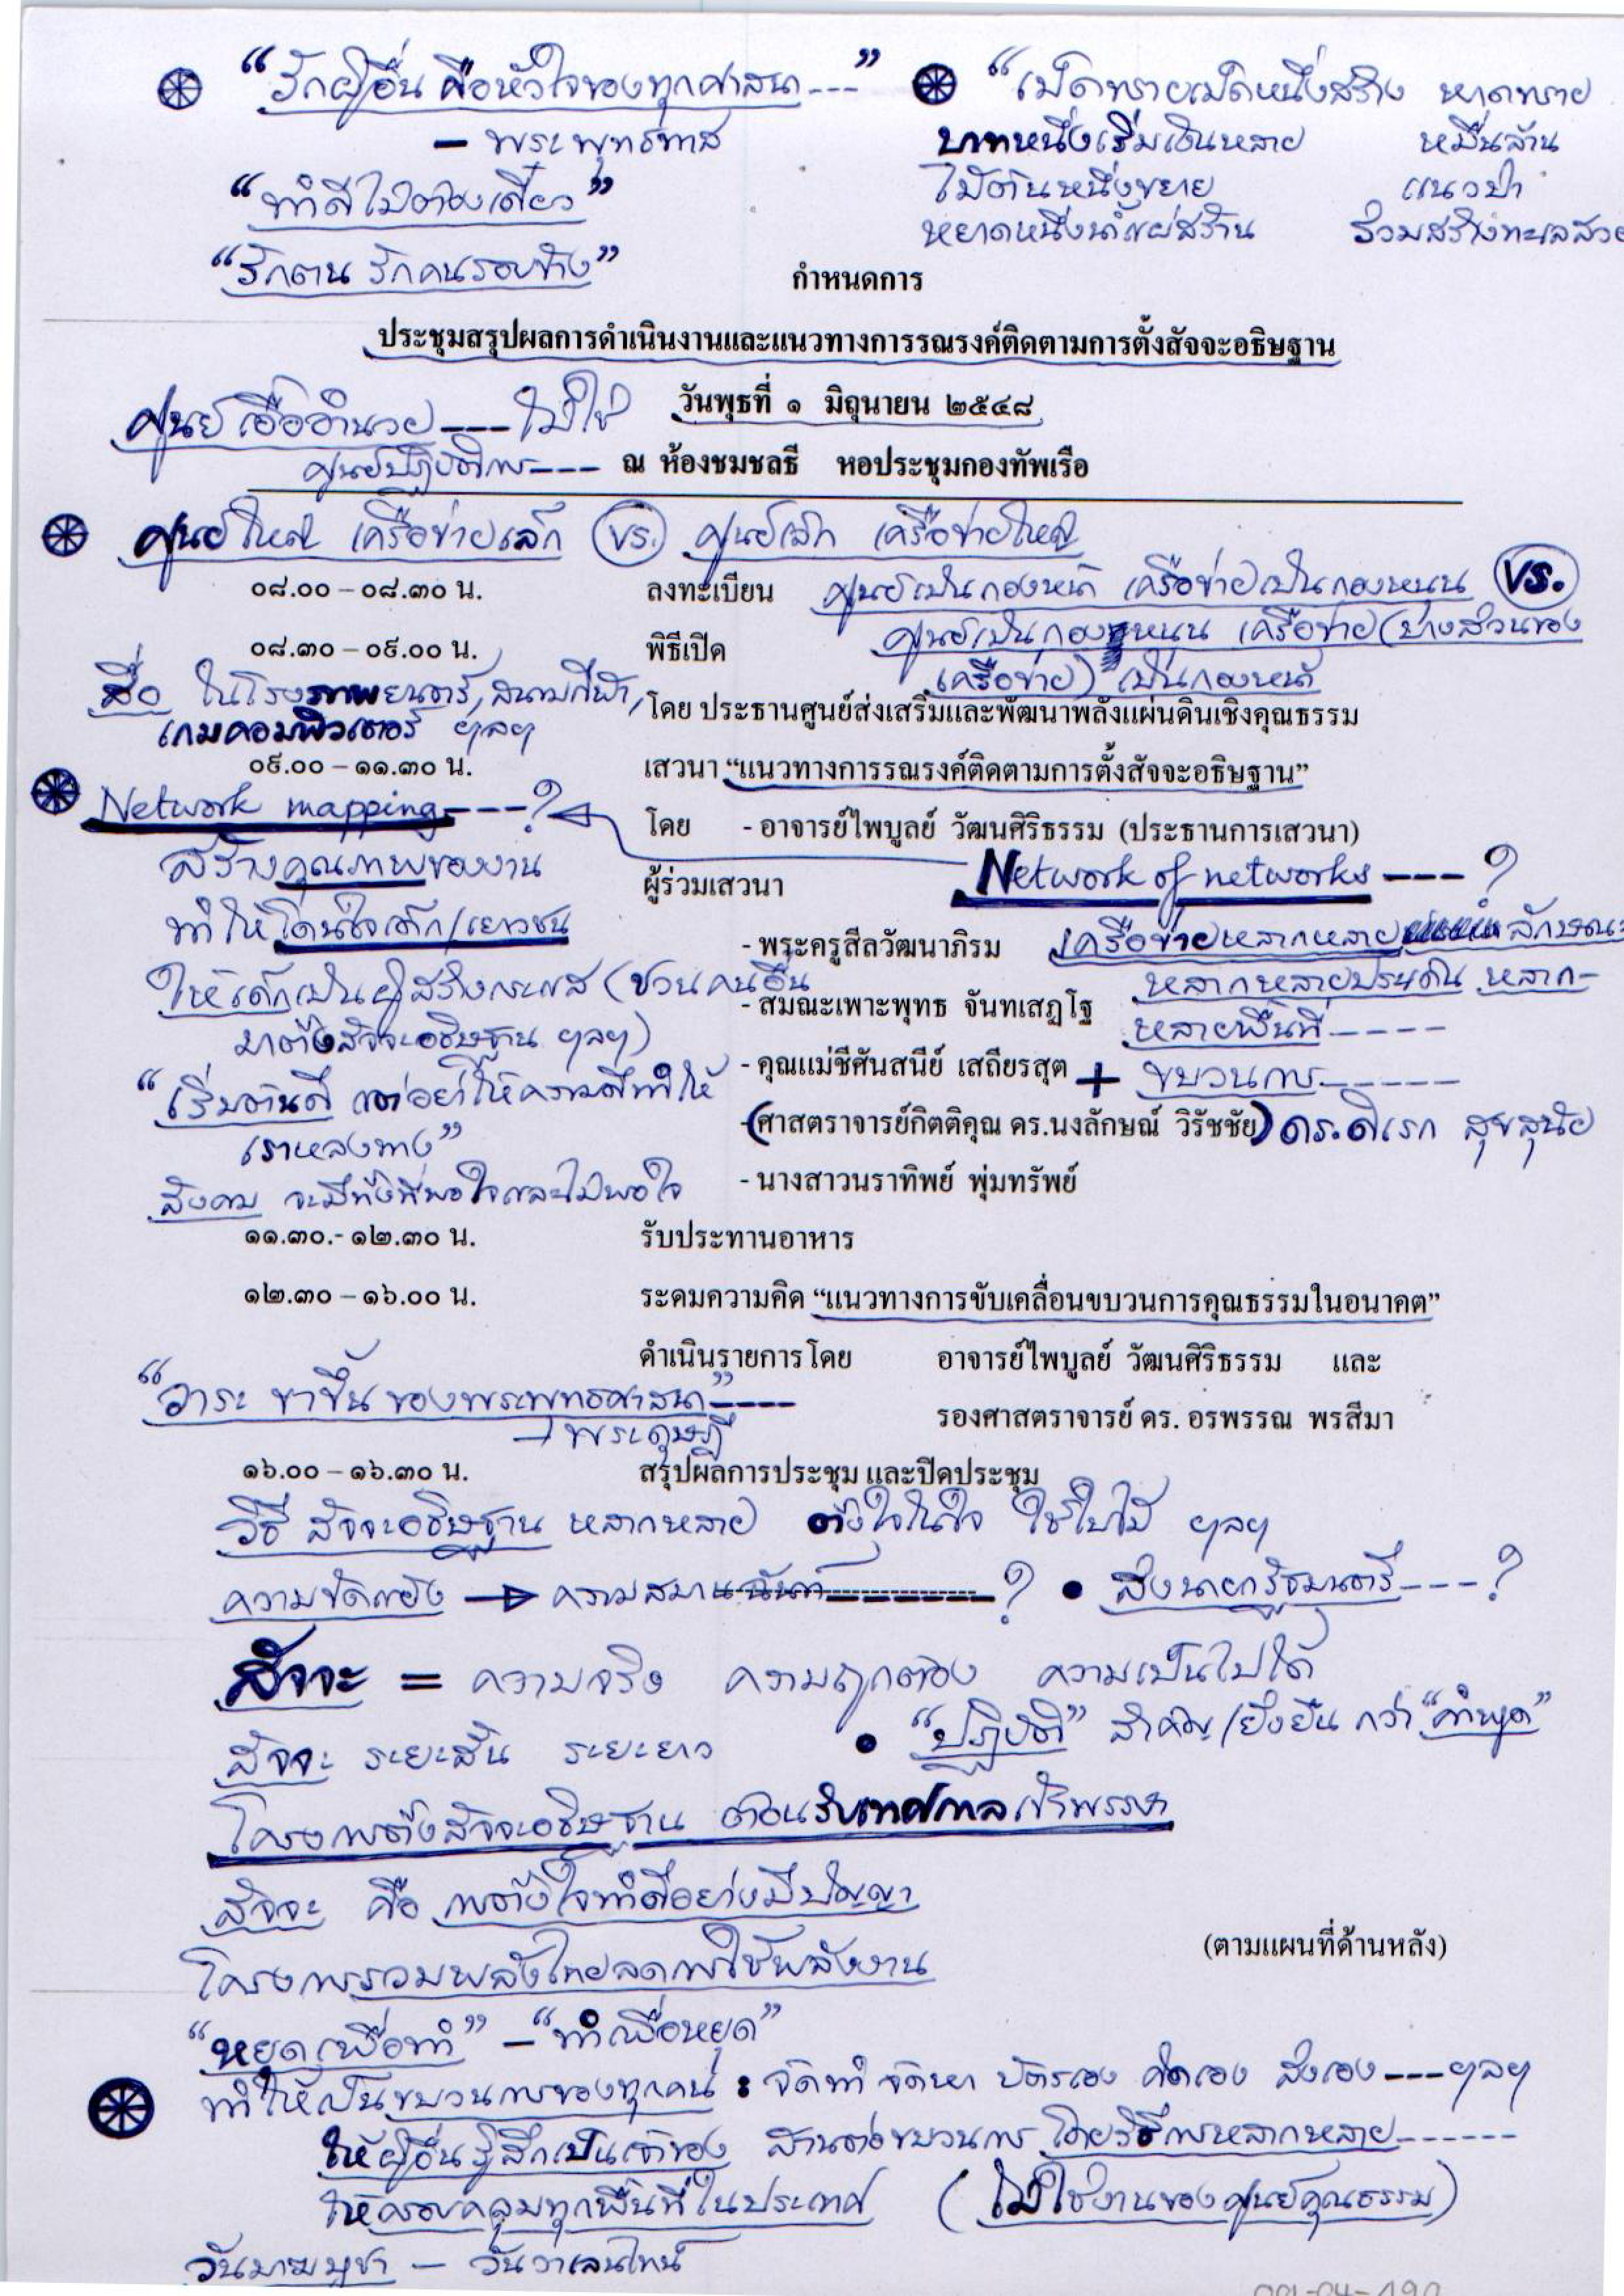 "รักผู้อื่น คือหัวใจของทุกศาสนา---"
- พระพุทธทาส
"ทำดีไม่ต้องเดี๋ยว"
"รักตน รักคนรอบข้าง"
"เม็ดทรายเม็ดหนึ่งสร้าง หาดทราย
บาทหนึ่งเริ่มเงินหลาย หมื่นล้าน
ไม้ต้นหนึ่งขยาย แนวป่า
หยาดหนึ่งน้ำแผ่สร้าน ร่วมสร้างทะเลสวย
กำหนดการ
ประชุมสรุปผลการดำเนินงานและแนวทางการรณรงค์ติดตามการตั้งสัจจะอธิษฐาน
วันพุธที่ ๑ มิถุนายน ๒๕๔๘
ศูนย์เอื้ออำนวย---ไม่ใช่
ศูนย์ปฏิบัติการ---
ณ ห้องชมชลธี หอประชุมกองทัพเรือ
ศูนย์ใหญ่ เครือข่ายเล็ก vs. ศูนย์เล็ก เครือข่ายใหญ่
๐๘.๐๐ – ๐๘.๓๐ น. ลงทะเบียน
ศูนย์เป็นกองหน้า เครือข่ายเป็นกองหนุน vs.
ศูนย์เป็นกองหนุน เครือข่าย (บางส่วนของ
เครือข่าย) เป็นกองหน้า
๐๘.๓๐ – ๐๙.๐๐ น. พิธีเปิด
สื่อ ในโรงภาพยนตร์, สนามกีฬา,
เกมคอมพิวเตอร์ ฯลฯ
โดย ประธานศูนย์ส่งเสริมและพัฒนาพลังแผ่นดินเชิงคุณธรรม
๐๙.๐๐ – ๑๑.๓๐ น. เสวนา "แนวทางการรณรงค์ติดตามการตั้งสัจจะอธิษฐาน"
Network mapping---?
โดย - อาจารย์ไพบูลย์ วัฒนศิริธรรม (ประธานการเสวนา)
สร้างคุณภาพของงาน
ผู้ร่วมเสวนา
Network of networks ---?
ทำให้โดนใจเด็ก/เยาวชน
- พระครูสีลวัฒนาภิรม
เครือข่ายหลากหลาย ลักษณะ
หลากหลายประเด็น หลาก-
หลายพื้นที่-----
+ ขบวนการ------
ให้เด็กเป็นผู้สร้างกระแส (ชวนคนอื่น
มาตั้งสัจจะอธิษฐาน ฯลฯ)
- สมณะเพาะพุทธ จันทเสฏโฐ
- คุณแม่ชีศันสนีย์ เสถียรสุต
"เริ่มต้นดี แต่อย่าให้ความดีทำให้
เราหลงทาง"
- (ศาสตราจารย์กิตติคุณ ดร.นงลักษณ์ วิรัชชัย) ดร.ดิเรก
- นางสาวนราทิพย์ พุ่มทรัพย์
สังคม จะมีทั้งที่พอใจและไม่พอใจ
๑๑.๓๐.- ๑๒.๓๐ น. รับประทานอาหาร
๑๒.๓๐ – ๑๖.๐๐ น. ระดมความคิด "แนวทางการขับเคลื่อนขบวนการคุณธรรมในอนาคต"
ดำเนินรายการโดย อาจารย์ไพบูลย์ วัฒนศิริธรรม และ
รองศาสตราจารย์ ดร. อรพรรณ พรสีมา
"วาระ ขาขึ้น ของพระพุทธศาสนา"----
- พระดุษฎี
๑๖.๐๐ – ๑๖.๓๐ น. สรุปผลการประชุม และปิดประชุม
วิธี สัจจะอธิษฐาน หลากหลาย ตั้งใจในใจ ใช้ใบไม้ ฯลฯ
ความขัดแย้ง → ความสมานฉันท์-------? • สิ่งนายกรัฐมนตรี---?
สัจจะ = ความจริง ความถูกต้อง ความเป็นไปได้
สัจจะ ระยะสั้น ระยะยาว • "ปฏิบัติ" สำคัญ/ยั่งยืน กว่า "คำพูด"
โครงการตั้งสัจจะอธิษฐาน ต้อนรับเทศกาลเข้าพรรษา
สัจจะ คือ การตั้งใจทำดีอย่างมีปัญญา
(ตามแผนที่ด้านหลัง)
โครงการรวมพลังไทยลดการใช้พลังงาน
"หยุดเพื่อทำ" - "ทำเพื่อหยุด"
ทำให้เป็นขบวนการของทุกคน : จัดทำ จัดหา บัตรเอง คิดเอง สั่งเอง---ฯลฯ
ให้ผู้อื่นรู้สึกเป็นเจ้าของ สานต่อขบวนการ โดยวิธีการหลากหลาย------
ให้ครอบคลุมทุกพื้นที่ในประเทศ (ไม่ใช่งานของศูนย์คุณธรรม)
วันมาฆบูชา - วันวาเลนไทน์